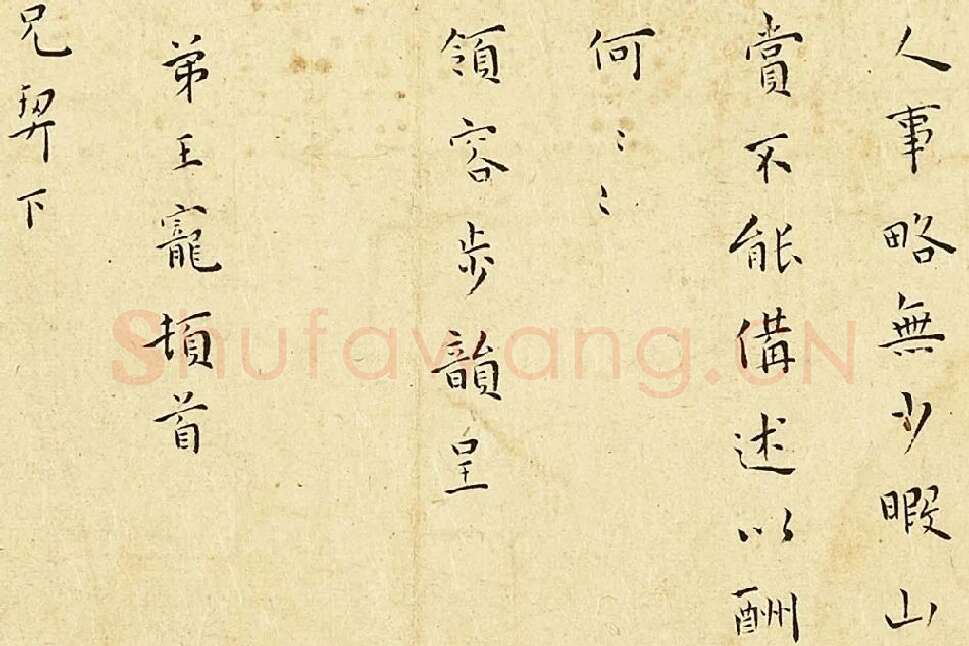 人事略無少暇山
賞不能備述以酬
何〻〻
領容步韻呈
弟王寵頓首
兄契下
Shufawang.CN